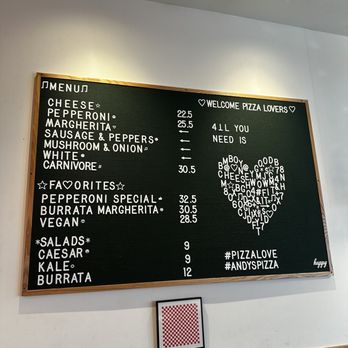 ♫MENU♫
CHEESE☆ 22.5
PEPPERONI 25.5
MARGHERITA ←
SAUSAGE & PEPPERS ←
MUSHROOM & ONION ←
WHITE ←
CARNIVORE 30.5
☆FA♡ORITES☆
PEPPERONI SPECIAL 32.5
BURRATA MARGHERITA 30.5
VEGAN 28.5
*SALADS*
CAESAR 9
KALE 9
BURRATA 12
♡WELCOME PIZZA LOVERS♡
4LL YOU
NEED IS
#PIZZALOVE
#ANDYSPIZZA
happy